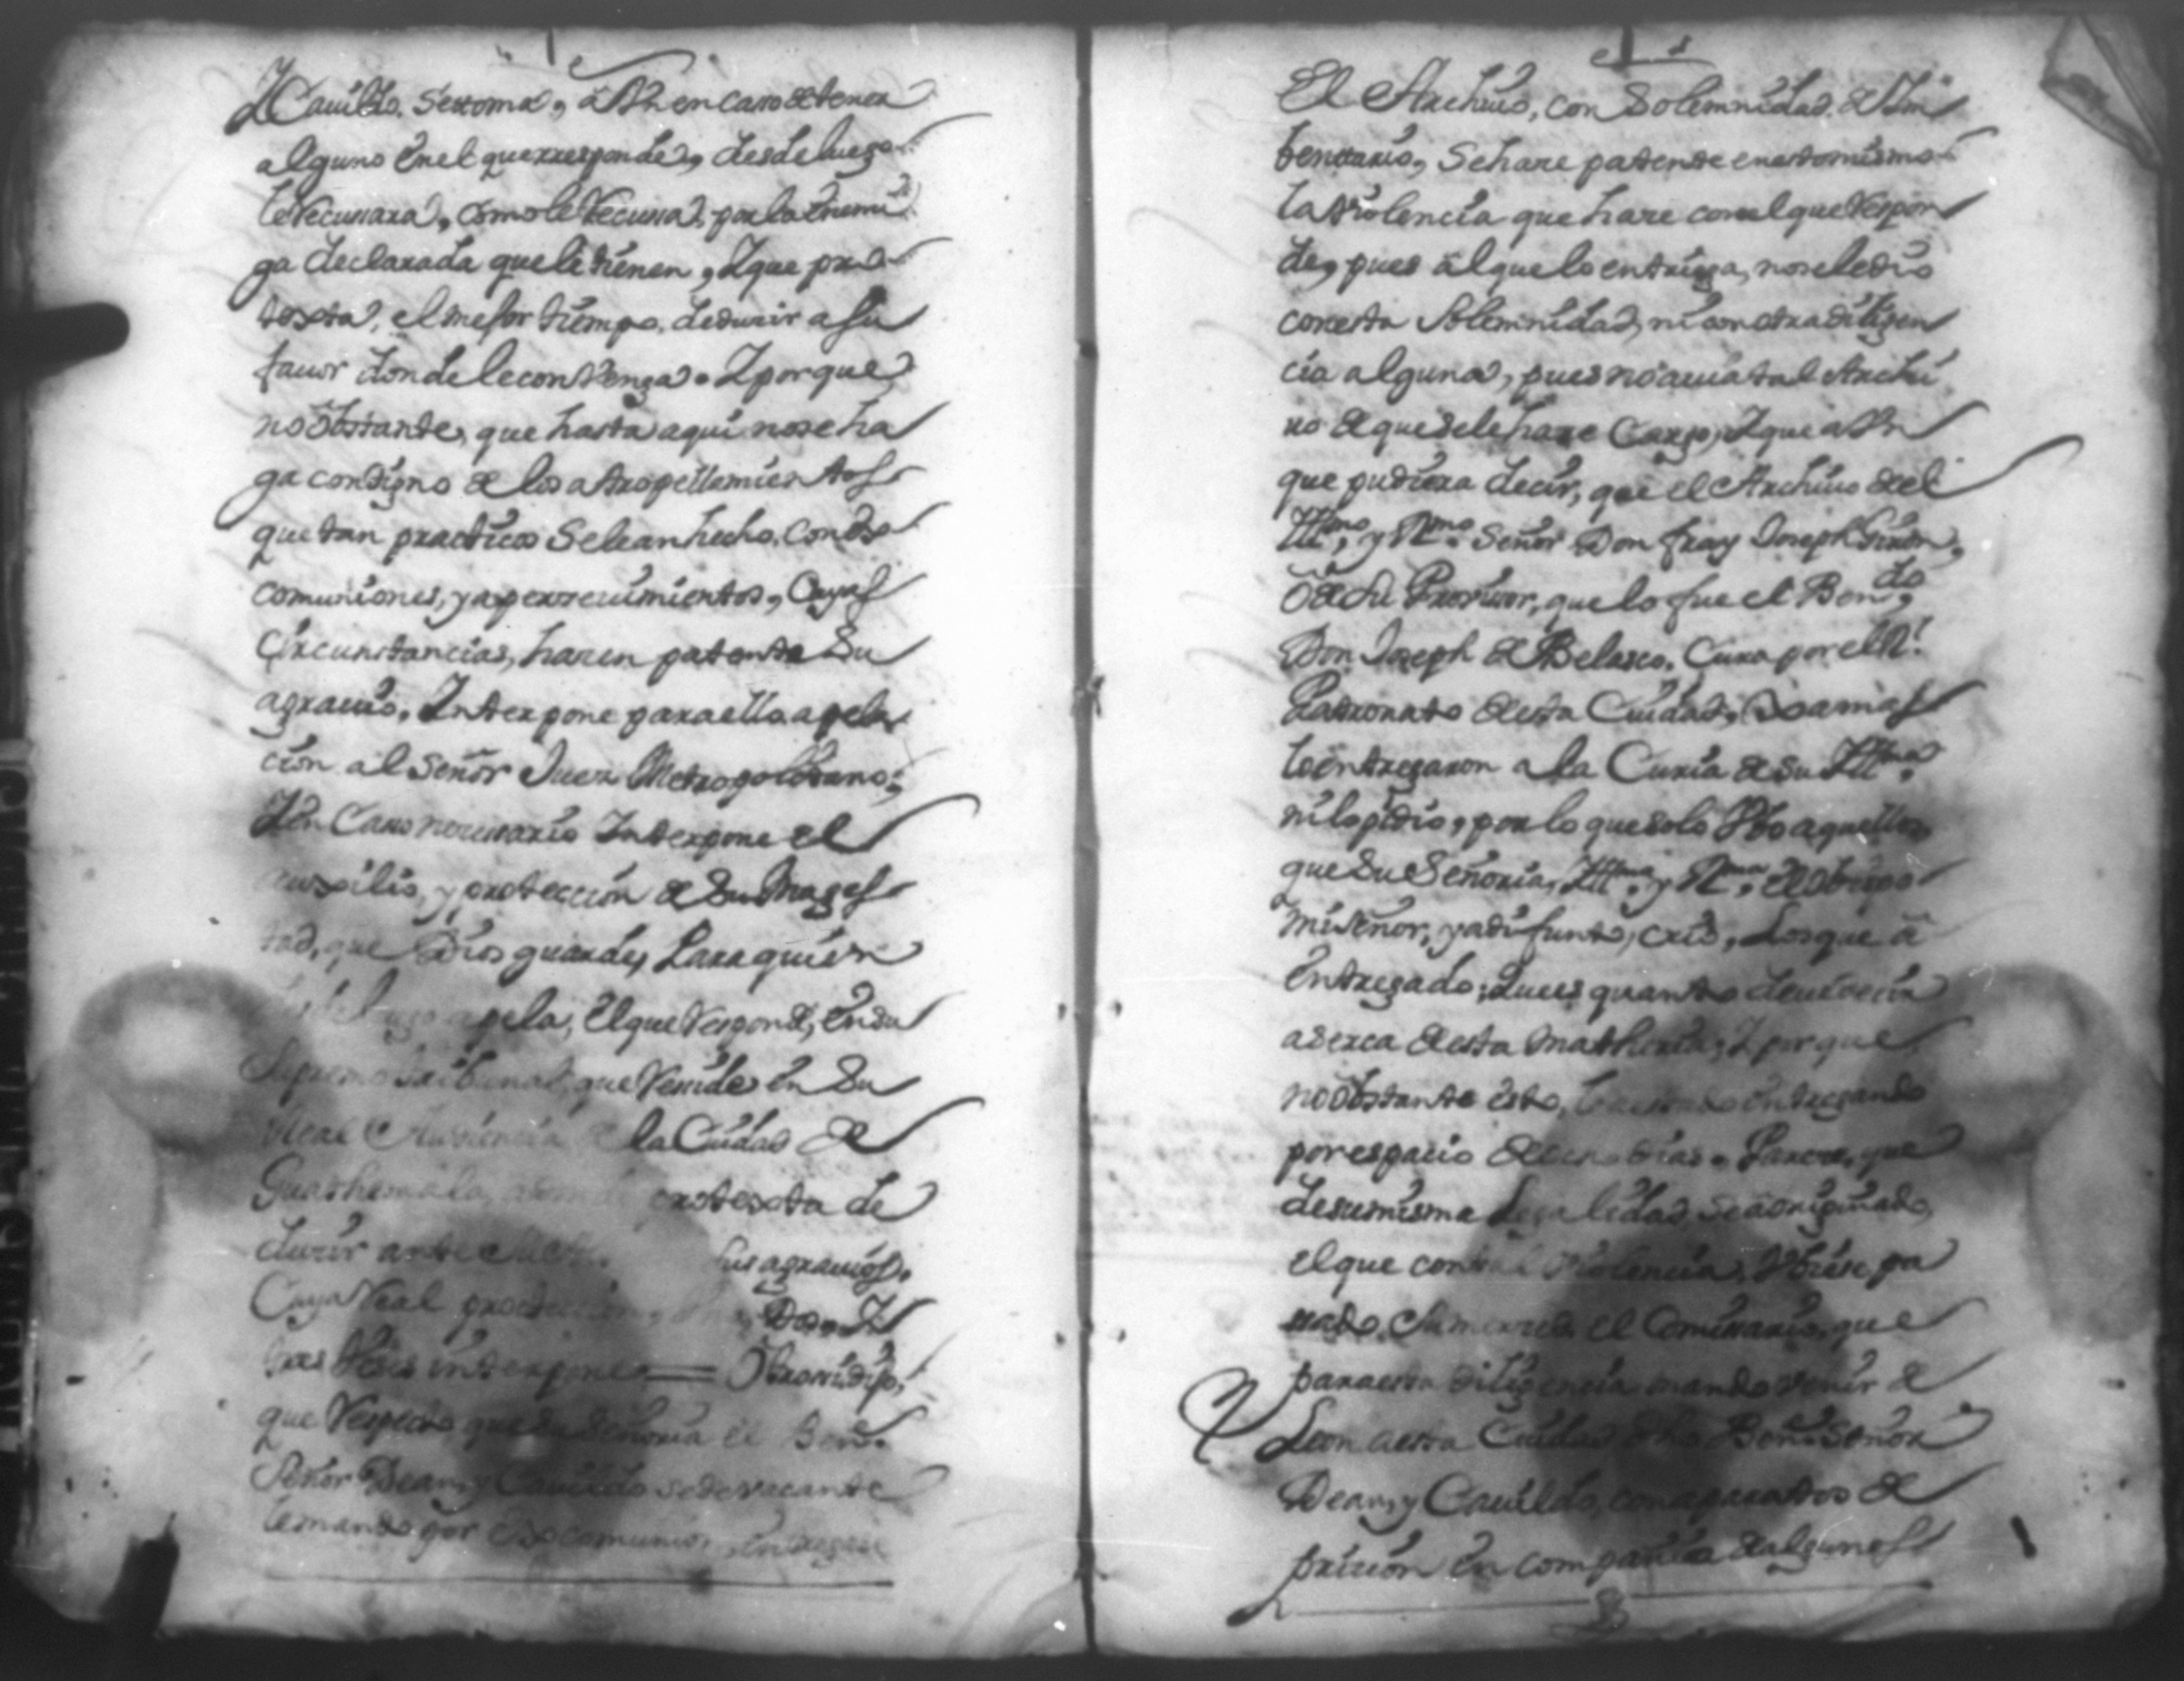 Y Cauildo. Se ttoma, â Vn en caso de tener
alguno ênel que rresponde, desde luego
le Recussara, Como le Recussa, por la ênemi
ga declarada que le tienen, Y que pro
texta, el mejor tiempo. deducir a su
fauor donde le conVenga. Y porque
no ôbstante, que hasta aqui no se ha
ga condigno de los atropellamientos
que tan practicos Se le an hecho. Con Ex
comuniones, y aperzeuimientos, Cuyas
Circunstancias, hacen patente Su
agrauio, Ynterpone para ello. apela
cion al Señor Juez Metropolitano;
Y ên Caso nessesario Ynterpone el
auxilio, y proteccion de Su Mages
tad, que Dios guarde, Para quien
apela, êl que Responde, ên su
Supremo tribunal, que Reside ên Su
Real Audiencia la Ciudad de
Guathemala, protexta de
ducir ante sus agrauios,
Cuya Real proteccion, Dos, Y
tres Vezes interpone = Otrosi dijo,
que Respecto que Su Señoria el
Señor Dean, y Cauildo sede vacante
le mando por Excomunion, êntregue
El Archiuo, con Solemnidad. de Yn
bentario, Se hace patente en esto mismo
la Violencia que hace con el que Respon
de, pues âl que lo entriega, no se le dio
con esta Solemnidad, ni con otra diligen
cia alguna, pues no auia tal Archi
uo de que se le hace Cargo, Y que a Vn
que pudiera decir, que el Archiuo del
Yllmo, y Rmo. Señor Don fray Joseph Giron,
ô de Su Provisor, que lo fue el Bendo,
Don Joseph de Belasco. Cura por el Rl.
Patronato desta Ciudad, Jamas
lo êntregaron a la Curia de Su Yllma.
ni lo pidio, por lo que solo Vbo aquellos
que Su Señoria, Yllma. y Rma. êl Obispo
mi señor, ya difunto, crio, Los que â
êntregado; Que es quanto deue decir
aserca desta Matheria; Y porque
no ôbstante êsto, êntregando
por espacio de dias. Parece, que
de su misma Legalidad se â originado,
el que con tal Violencia, Vbiese pa
sado. Su merced. el Comissario, que
para esta diligencia mando Venir de
Leon a esta Ciudad Señor
Dean, y Cauildo, con aparatos de
pricion ên compañia de algunos